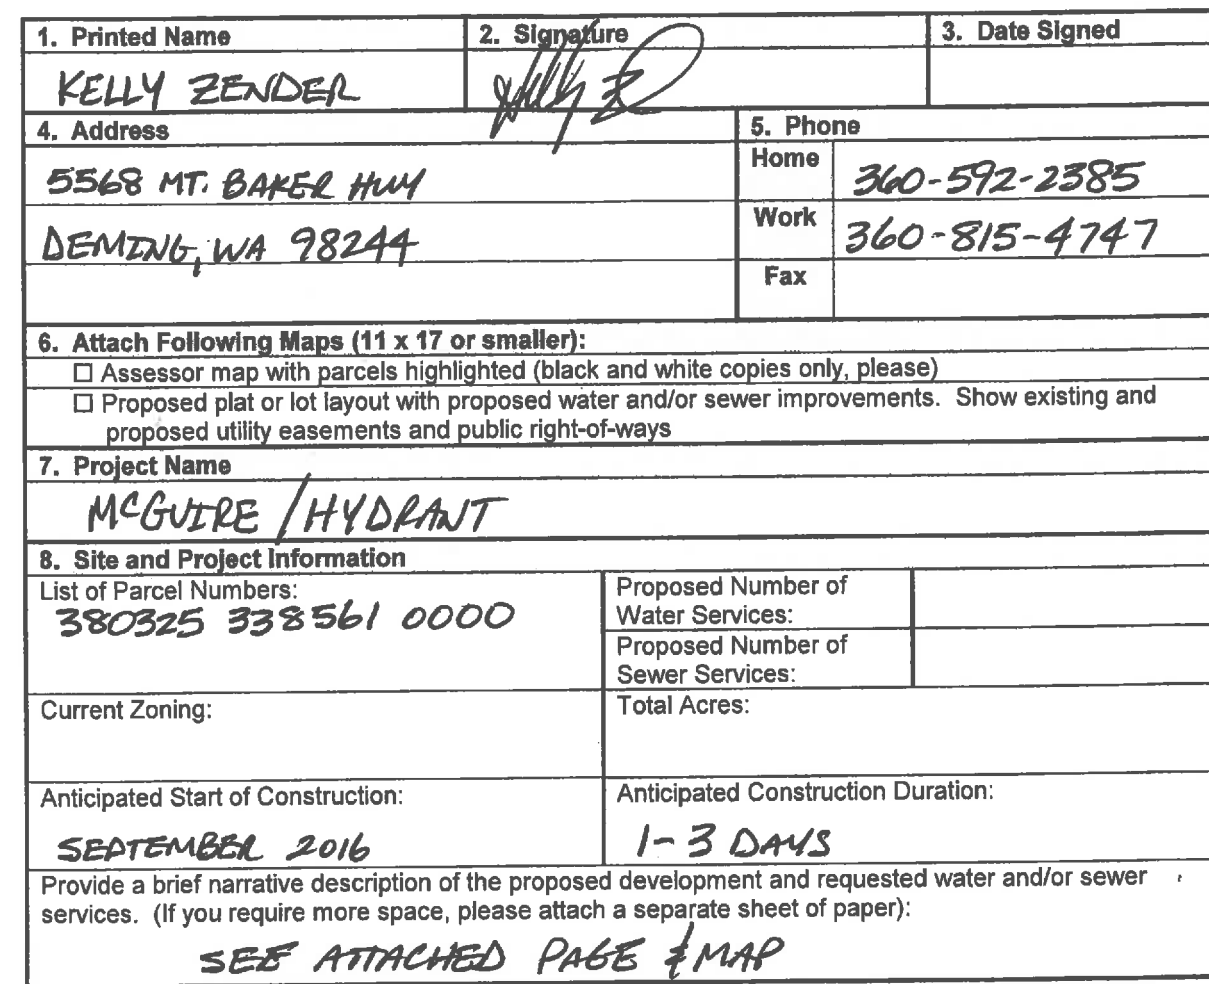 1. Printed Name
2. Signature
3. Date Signed
KELLY ZENDER
Kelly Z
4. Address
5. Phone
5568 MT. BAKER HWY
Home
360-592-2385
DEMING, WA 98244
Work
360-815-4747
Fax
6. Attach Following Maps (11 x 17 or smaller):
☐ Assessor map with parcels highlighted (black and white copies only, please)
☐ Proposed plat or lot layout with proposed water and/or sewer improvements. Show existing and
proposed utility easements and public right-of-ways
7. Project Name
MCGUIRE / HYDRANT
8. Site and Project Information
List of Parcel Numbers:
380325 338561 0000
Proposed Number of
Water Services:
Proposed Number of
Sewer Services:
Current Zoning:
Total Acres:
Anticipated Start of Construction:
SEPTEMBER 2016
Anticipated Construction Duration:
1-3 DAYS
Provide a brief narrative description of the proposed development and requested water and/or sewer
services. (If you require more space, please attach a separate sheet of paper):
SEE ATTACHED PAGE & MAP